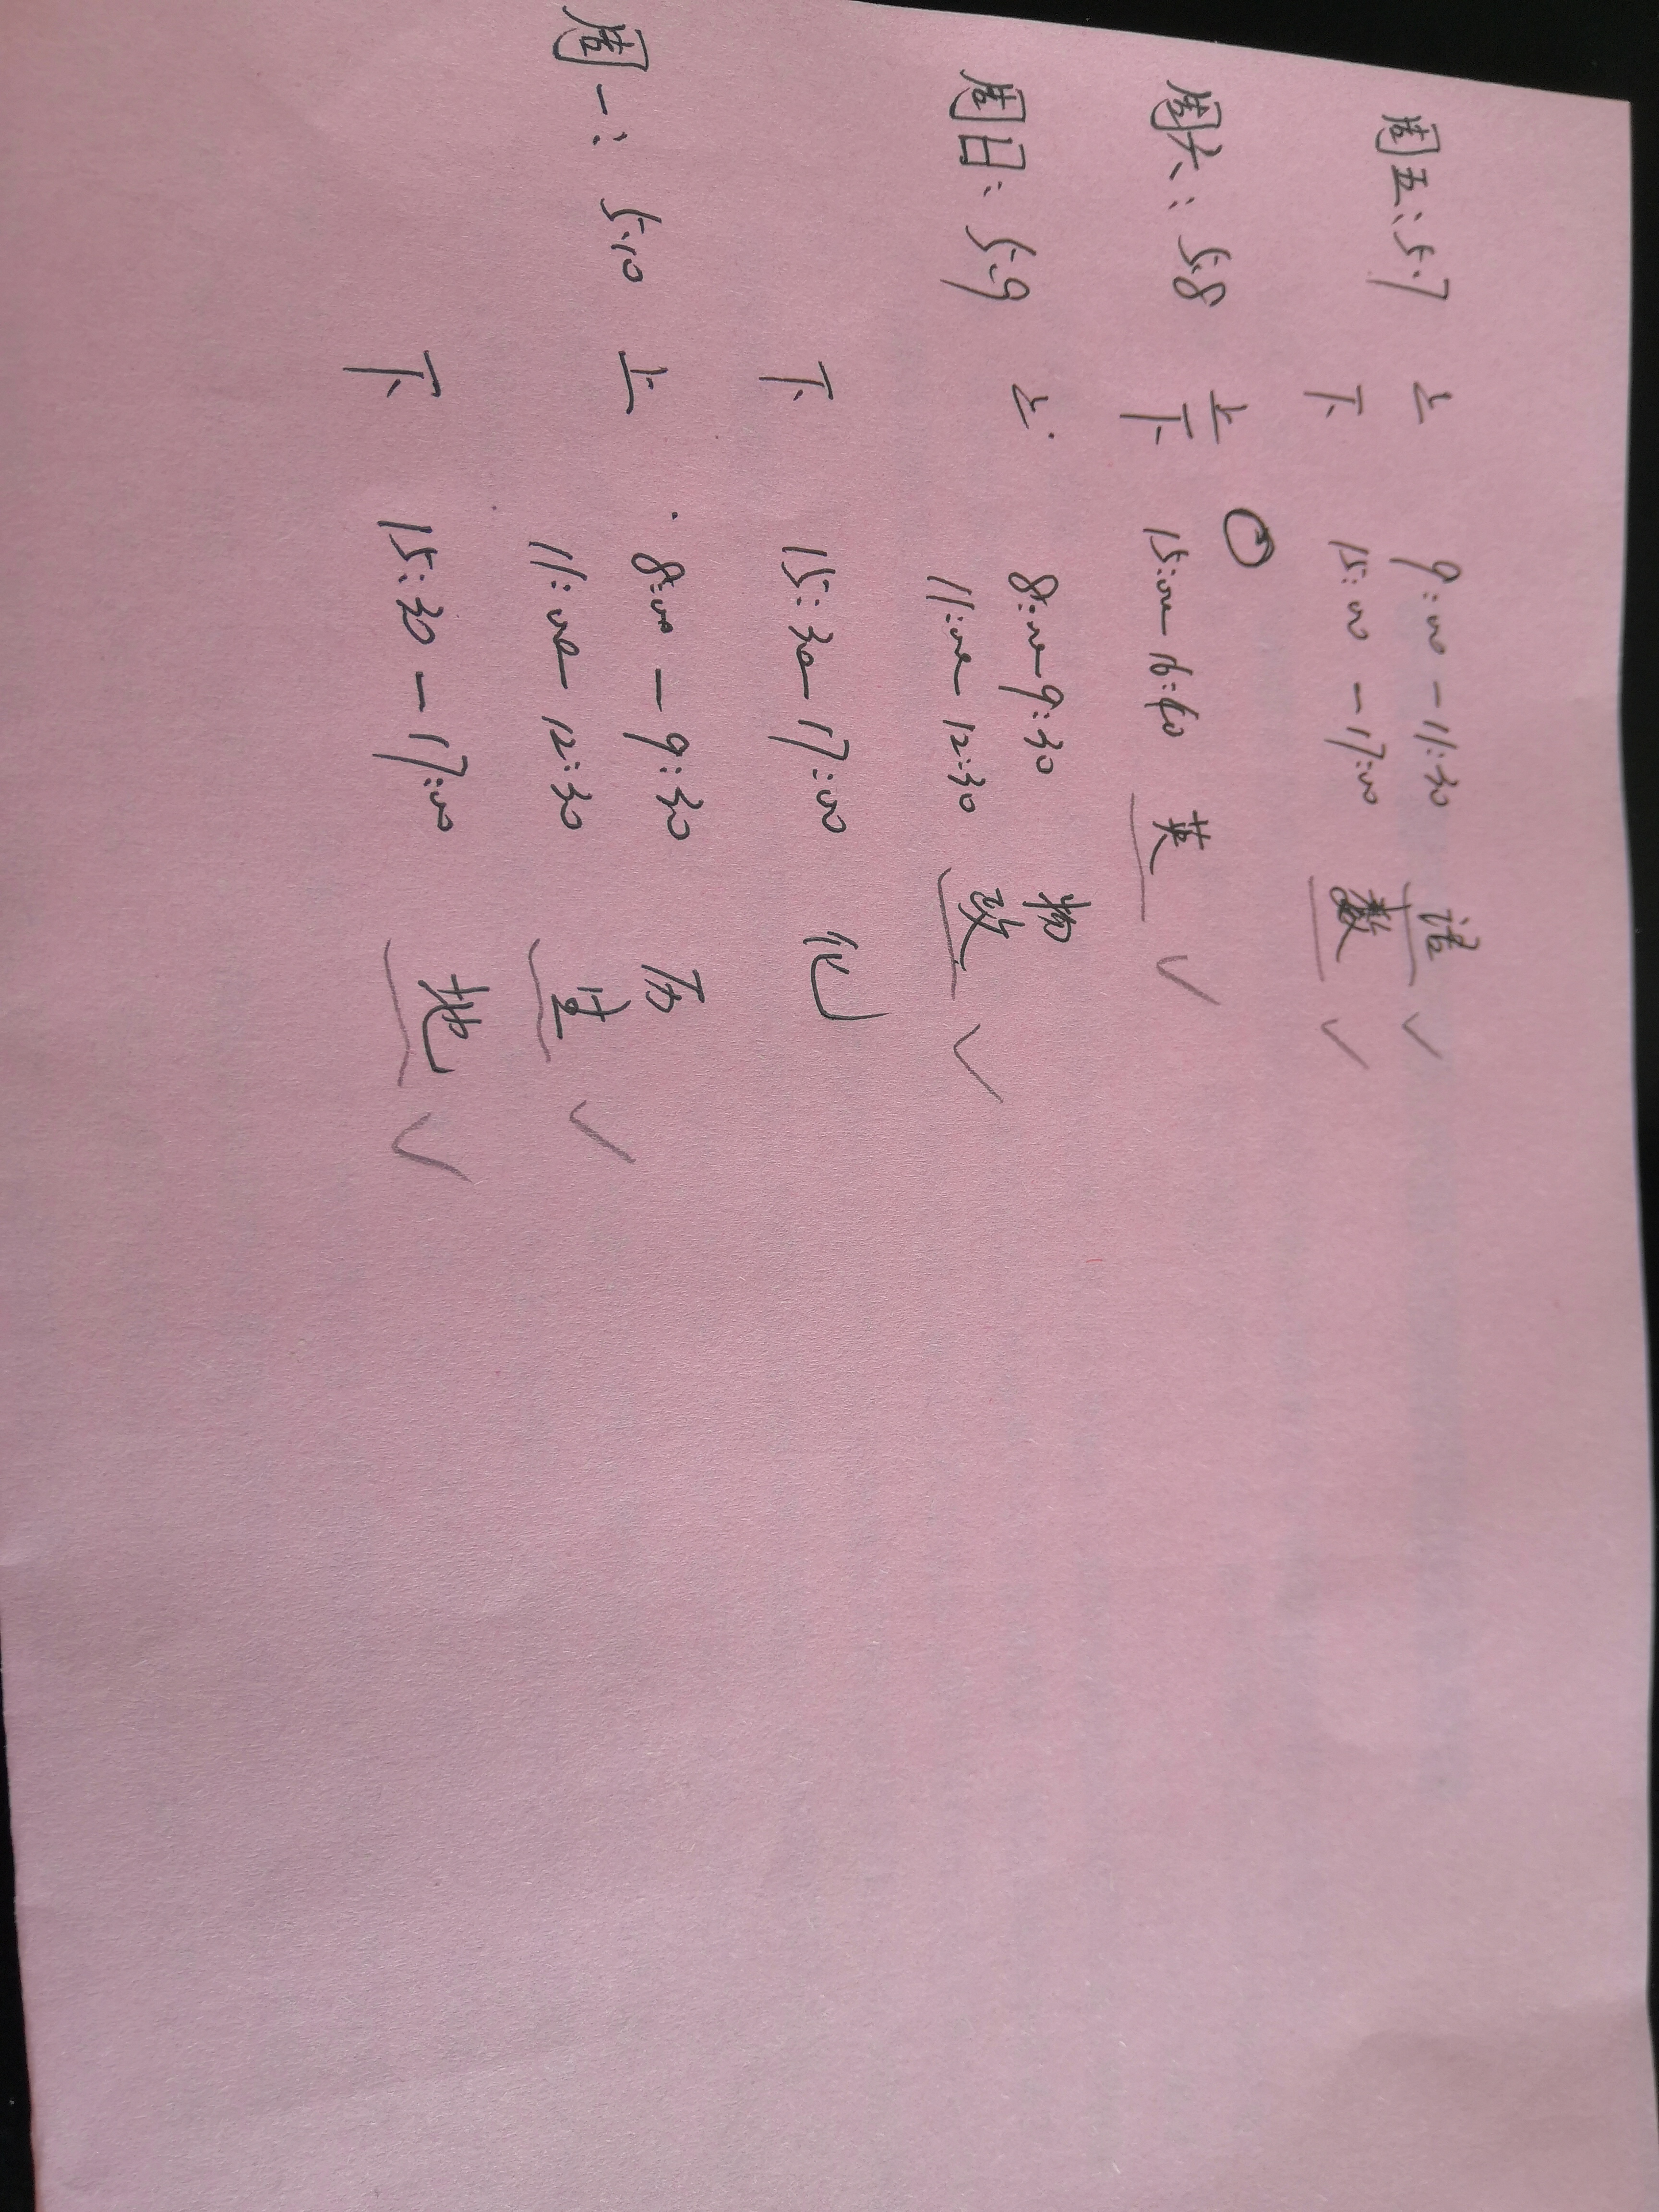 周五：5.7 上 9:00-11:30 语 ✓
下 15:00-17:00 数 ✓
周六：5.8 上
下 15:00-16:40 英 ✓
周日：5.9 上 8:00-9:30 物
11:00-12:30 政 ✓
下 15:30-17:00 化
周一：5.10 上 8:00-9:30 历
11:00-12:30 生 ✓
下 15:30-17:00 地 ✓